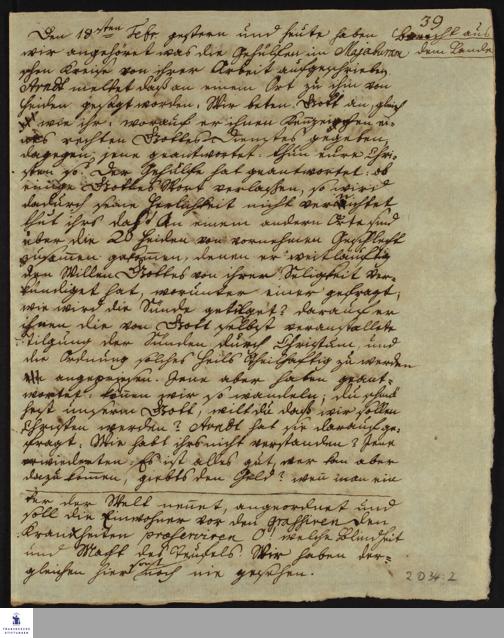 39
Den 18ten Febr. gestern und heute haben bericht aus
wir angehöret was die Gehülfen im Majaburam dem Lande
schen Kreise von ihrer Arbeit aufgeschrieben.
Arndt meldet daß an einem Ort zu ihm von
Heiden gesagt worden: Wir beten Gott an, gleich
wie ihr: worauf er ihnen Kennzeichen ei-
nes rechten Gottes Dienstes gegeben,
dagegen jene geantwortet: thun eure Chri-
sten so. Der Gehülfe hat geantwortet: ob
einige Gottes Wort verlassen, so wird
dadurch seine Herlichkeit nicht vernichtet
thut ihrs das? An einem andern Orte sind
über die 20 Heiden von vornehmen Geschlecht
zusammen gekommen, denen er weitläuftig
den Willen Gottes von ihrer Seligkeit ver-
kündiget hat, worunter einer gefragt,
wie wird die Sünde getilget? darauf er
ihnen die von Gott selbst veranstaltete
tilgung der Sünden durch Christum, und
die Ordnung solches Heils theilhaftig zu werden
angepriesen. Jene aber haben geant-
wortet: können wir so wandeln; du
hest unsern Gott, wilt du daß wir sollen
Christen werden? Arndt hat sie darauf ge-
fragt: Wie habt ihrs nicht verstanden? Jene
erwiederten: Es ist alles gut, wer kan aber
dazu kommen, giebts den Geld? wenn man ein
der der Welt nennet, angeordnet und
soll die Einwohner vor den grassiren den
Krankheiten praeserviren O welche Blindheit
und Macht des Teufels. Wir haben der-
gleichen hier sonst noch nie gesehen.
2 D 34 : 2
FRANCKESCHE
STIFTUNGEN